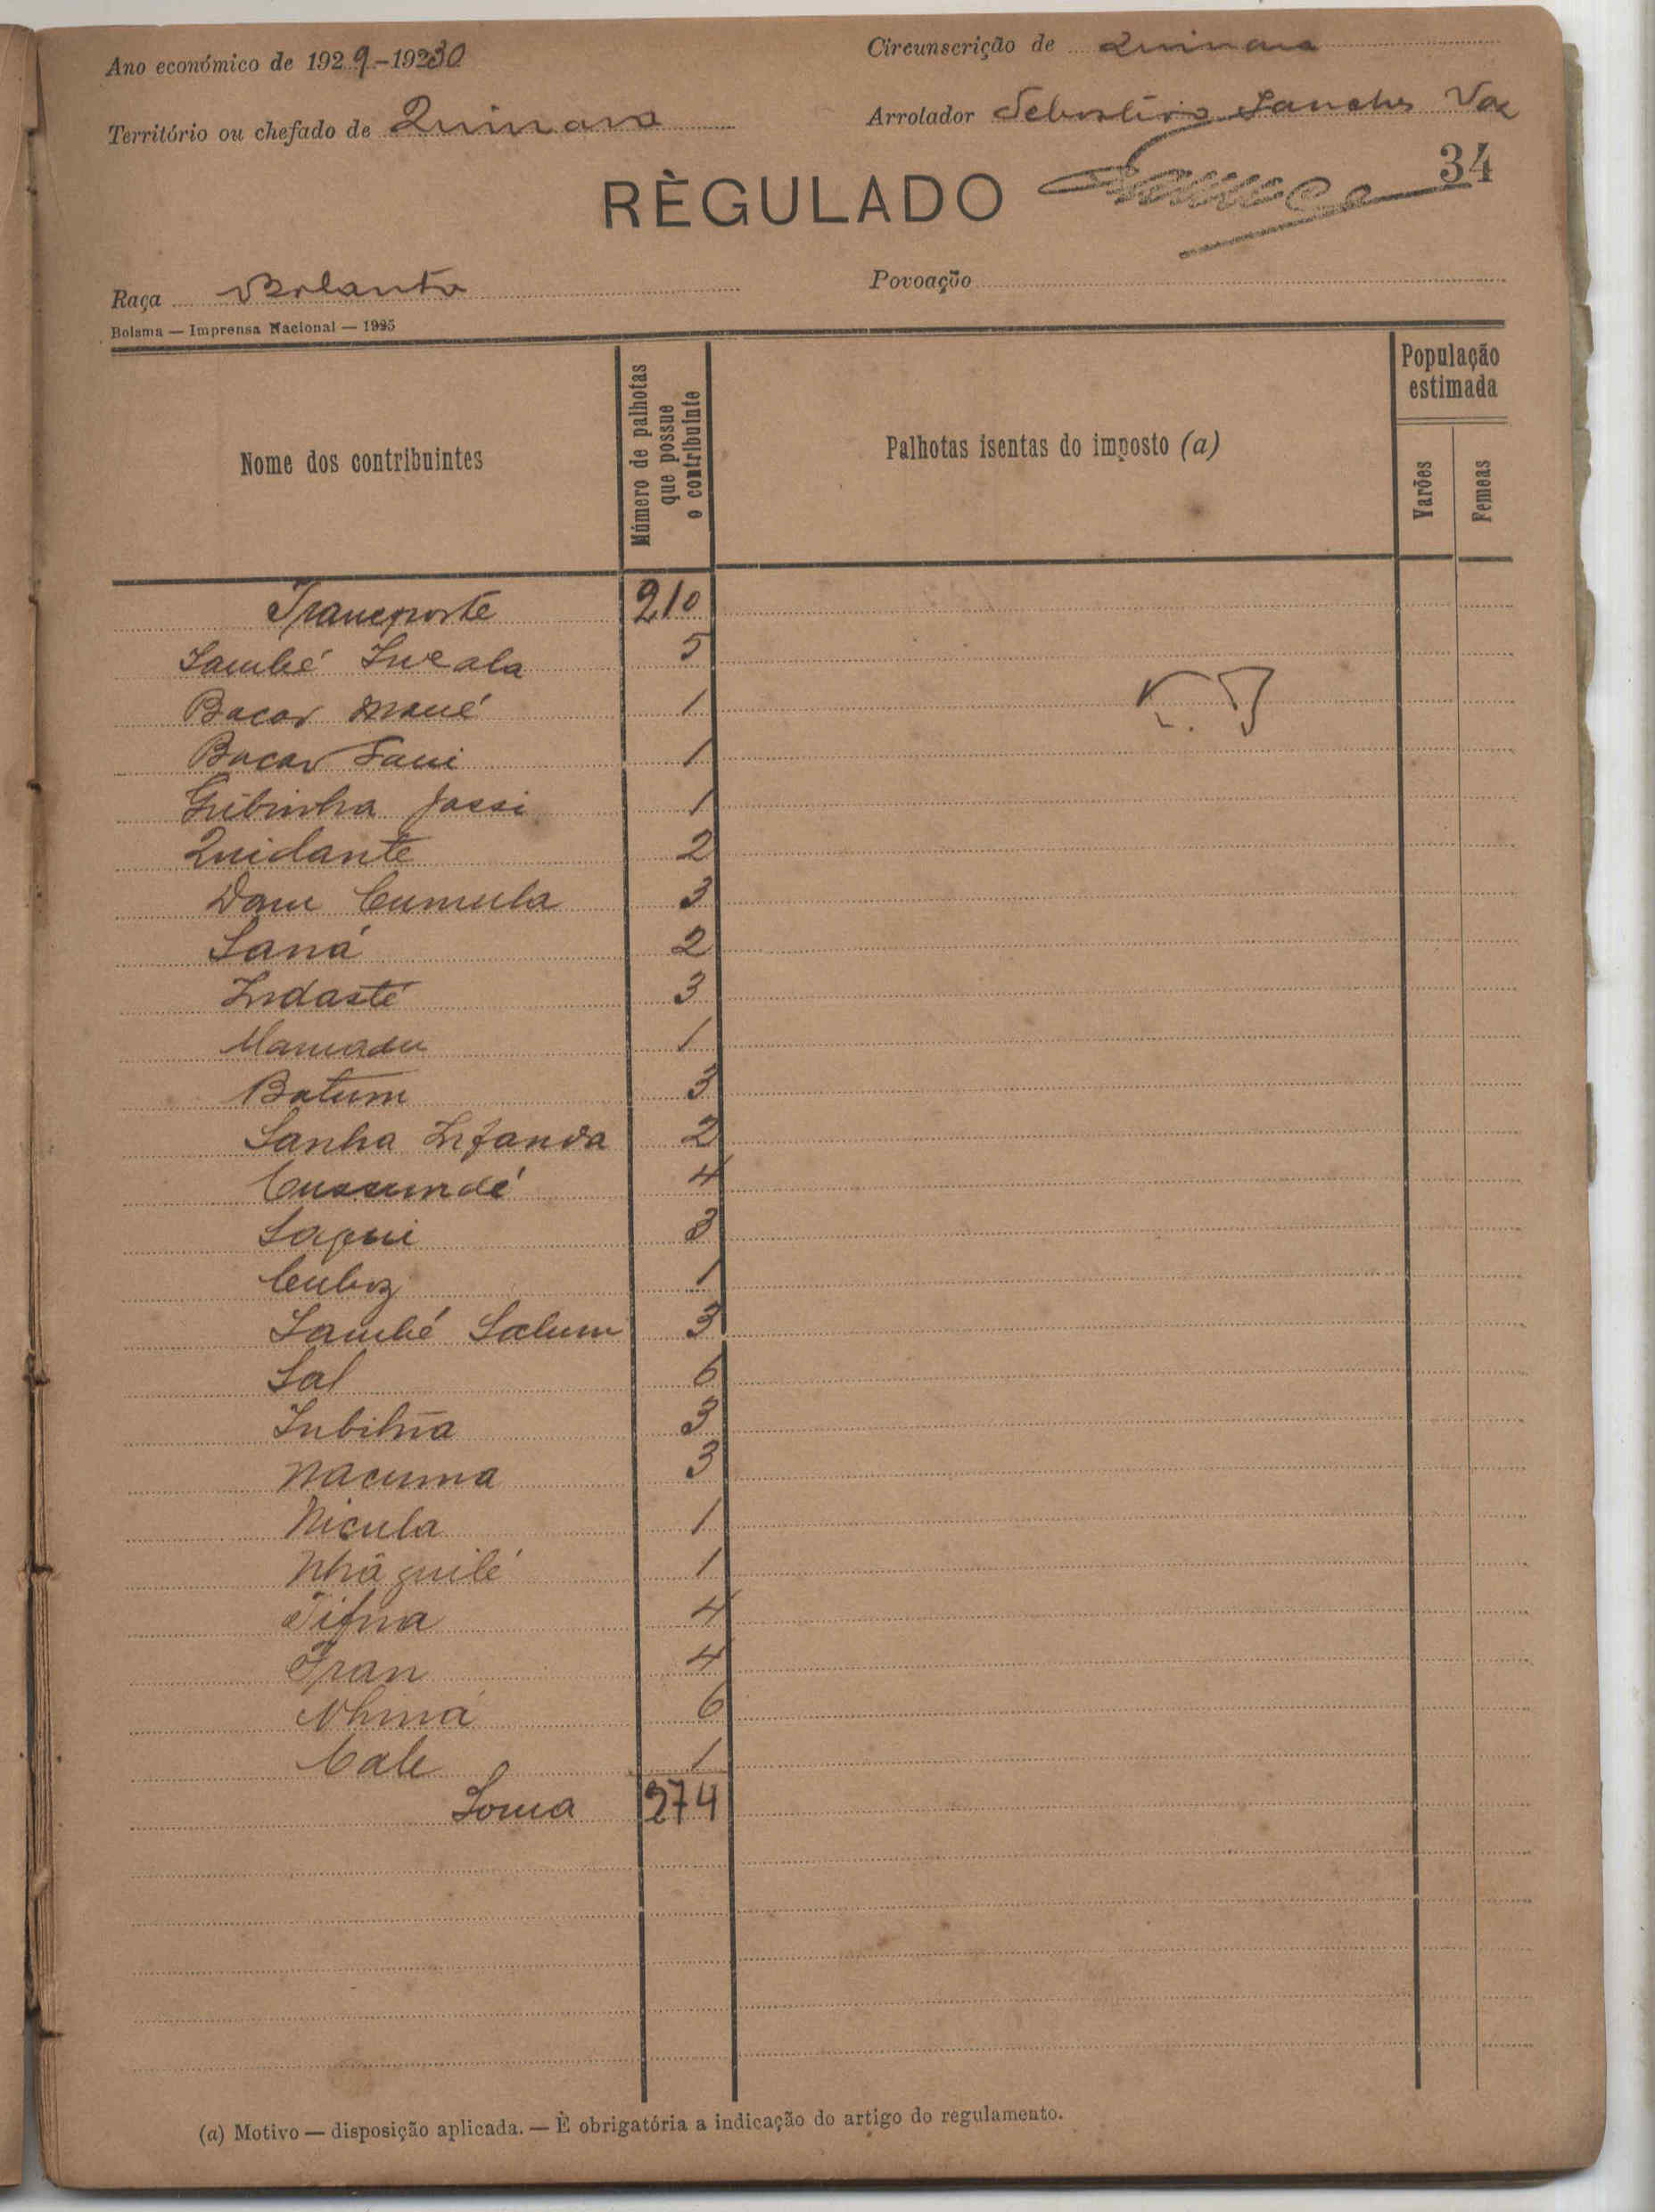 Ano económico de 1929-1930
Circunscrição de Quinara
Território ou chefado de Quinara
Arrolador Sebastião Sanches Vaz
34
RÈGULADO
Raça Balanta
Povoação
Bolama — Imprensa Nacional — 1925
Nome dos contribuintes
Número de palhotas
que possue
o contribuinte
Palhotas isentas do imposto (a)
População
estimada
Varões
Femeas
Transporte 210
Sambé 5
Bacar Mané 1
Bacar Fani 1
Jassi 1
Quidante 2
Dam Cumula 3
Saná 2
Indasté 3
Mamadu 1
Batum 3
Sanha Infanda 2
Cussumdé 4
Sagui 3
1
Sambé Salum 3
Sal 6
3
Nacuma 3
Nicula 1
Nhãguilé 1
Tifna 4
Fran 4
Nhiná 6
Cale 1
Soma 274
(a) Motivo — disposição aplicada. — È obrigatória a indicação do artigo do regulamento.